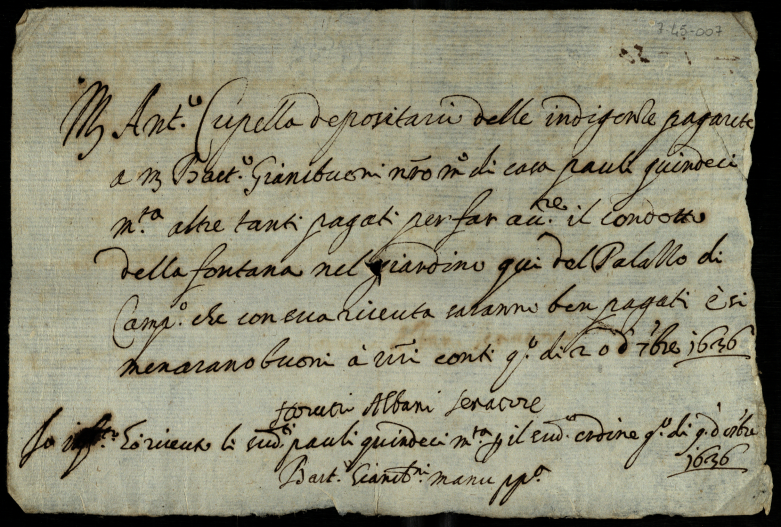 7-45-007
M Ant.º Cupella depositario delle indigenze pagarete
a M Bart.º Gianibuoni nr̃o mº di casa pauli quindeci
m.ta altre tanti pagati per far acc.re il condotto
della fontana nel giardino qui del Palazzo di
Camp.º che con sua riceuta saranno ben pagati è si
menarano buoni à vr̃i conti q.º di 20 d 7bre 1636
Horatio Albani Senatore
Io inf.to hò riceuto li sud.ti pauli quindeci m.ta p il sud.º ordine q.º di p.º d'8bre
1636
Bart.º Gianib.ni manu pp.a